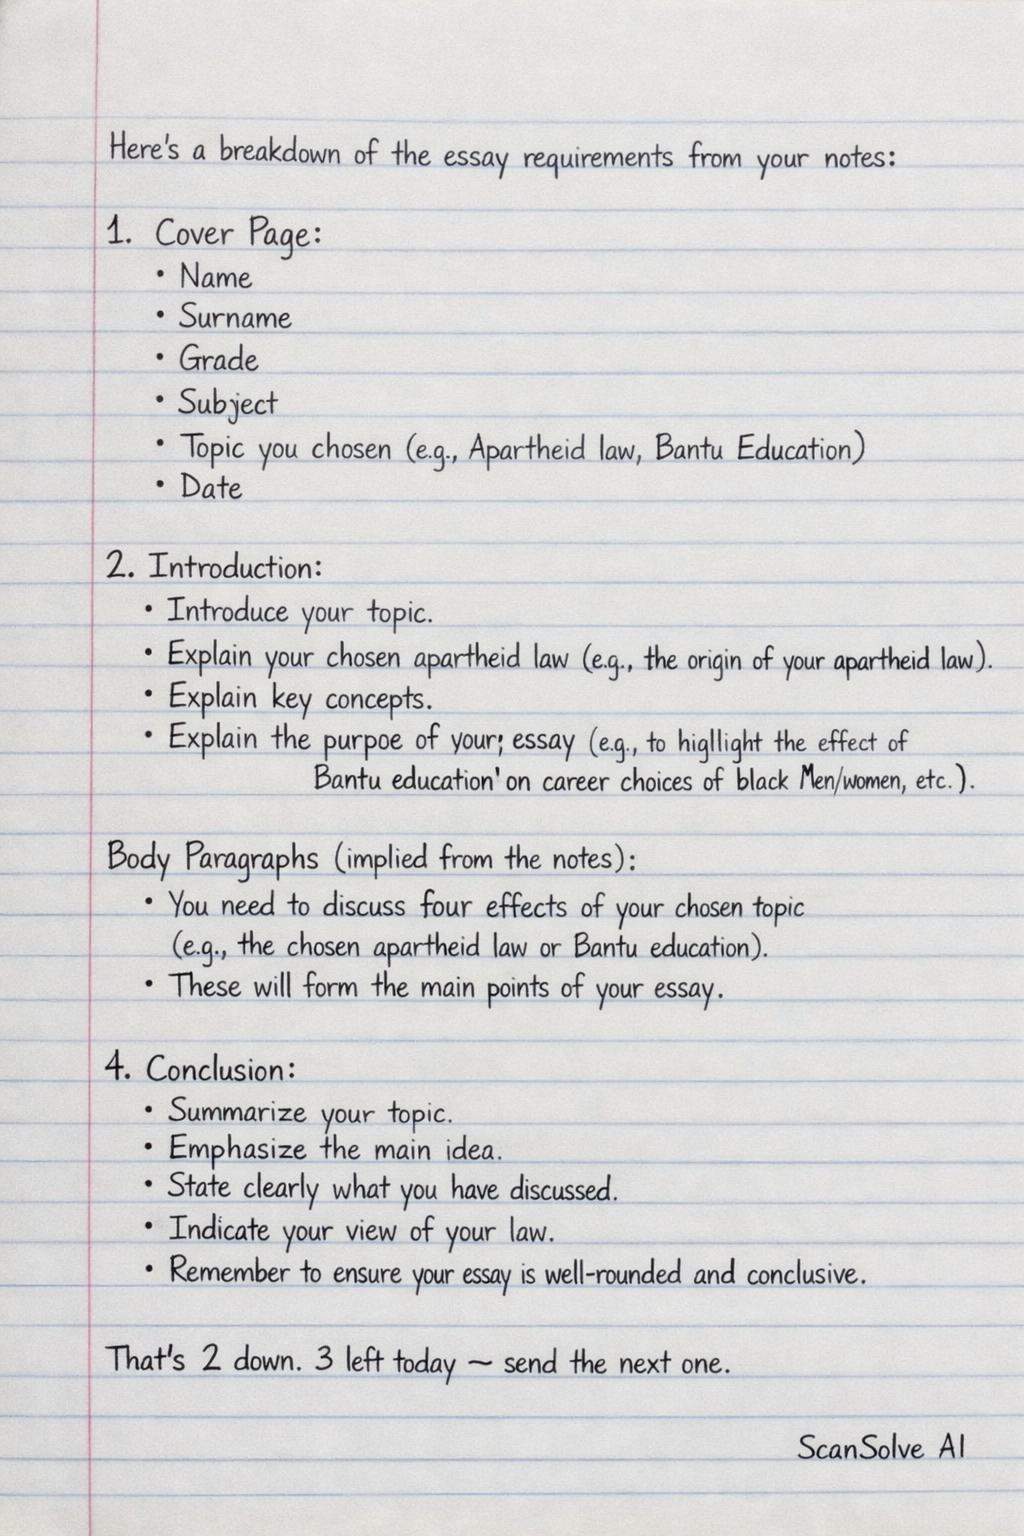 Here's a breakdown of the essay requirements from your notes:
1. Cover Page:
• Name
• Surname
• Grade
• Subject
• Topic you chosen (e.g., Apartheid law, Bantu Education)
• Date
2. Introduction:
• Introduce your topic.
• Explain your chosen apartheid law (e.g., the origin of your apartheid law).
• Explain key concepts.
• Explain the purpoe of your; essay (e.g., to higllight the effect of
Bantu education' on career choices of black Men/women, etc.).
Body Paragraphs (implied from the notes):
• You need to discuss four effects of your chosen topic
(e.g., the chosen apartheid law or Bantu education).
• These will form the main points of your essay.
4. Conclusion:
• Summarize your topic.
• Emphasize the main idea.
• State clearly what you have discussed.
• Indicate your view of your law.
• Remember to ensure your essay is well-rounded and conclusive.
That's 2 down. 3 left today ~ send the next one.
ScanSolve AI